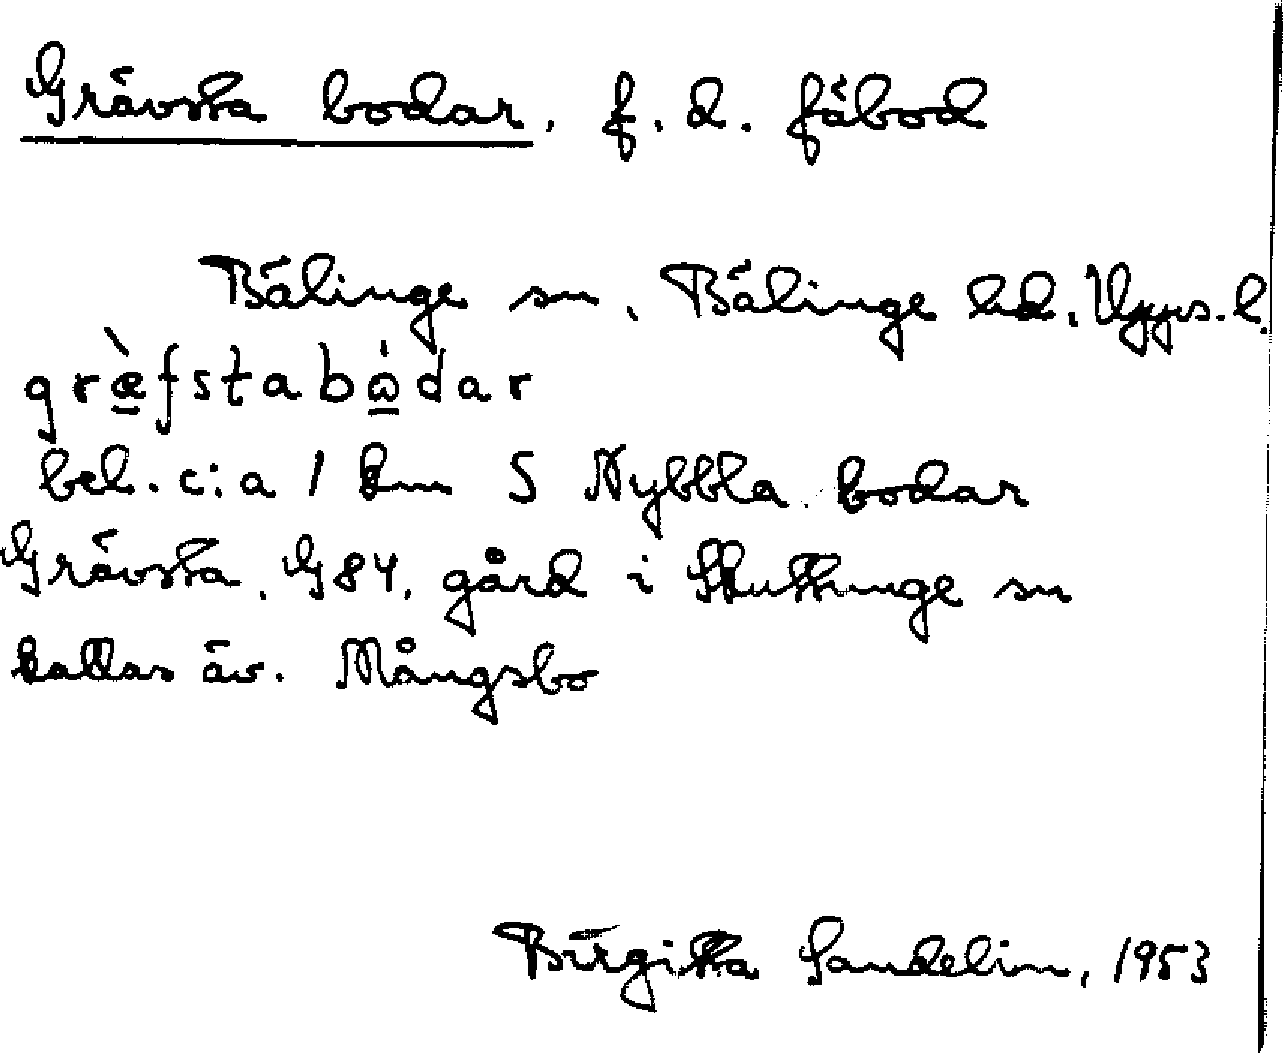 Grävsta bodar, f.d. fäbod
Bälinge sn, Bälinge hd, Upps.l.
græ̠̀fstabὼ̠dar
bel. c:a 1 km S Nybbla bodar
Grävsta, G84, gård i Skuttunge sn
kallas äv. Mångsbo
Birgitta Sandelin, 1953